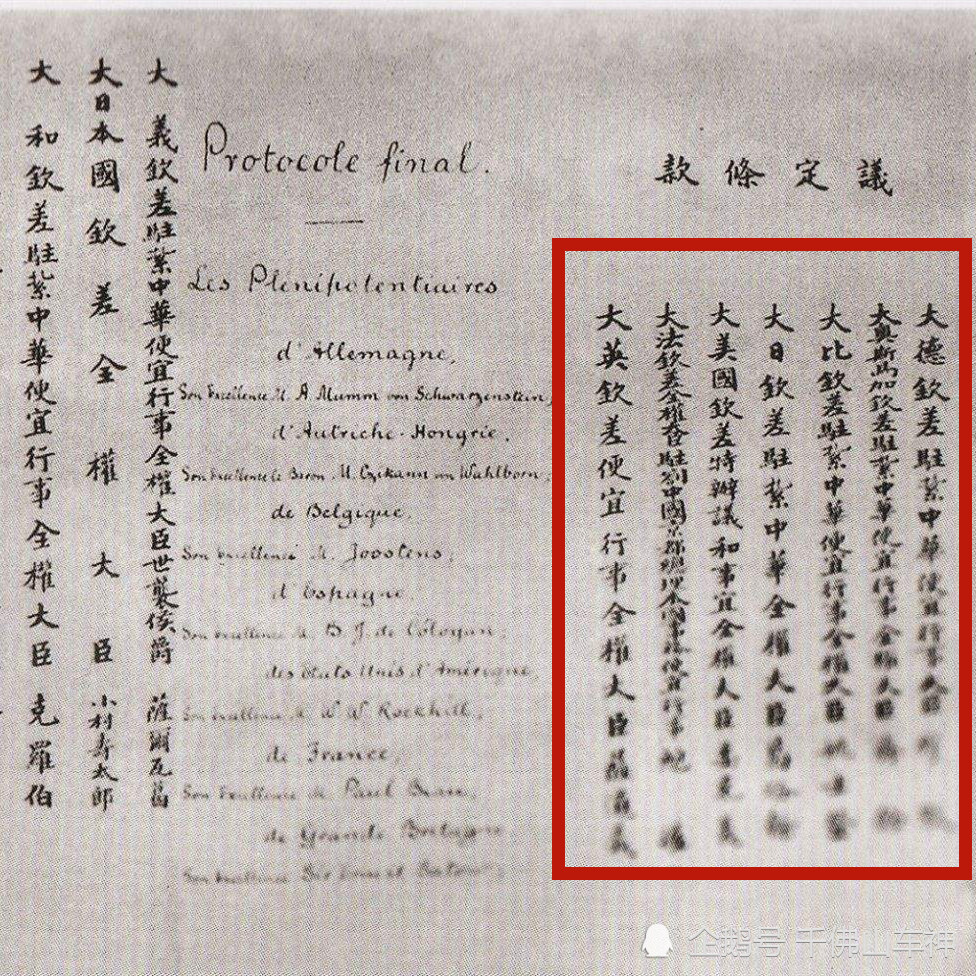 議定條款
大德欽差駐紮中華便宜行事大臣
大奧斯馬加欽差駐紮中華便宜行事全權大臣
大比欽差駐紮中華便宜行事全權大臣
大日欽差駐紮中華全權大臣
大美國欽差特辦議和事宜全權大臣柔克義
大法欽差全權大臣駐劄中國京都總理本國事務便宜行事
大英欽差便宜行事全權大臣薩道義
Protocole final.
Les Plénipotentiaires
d'Allemagne,
Son Excellence M. A. Mumm von Schwarzenstein;
d'Autriche-Hongrie,
Son Excellence le Baron M. Czikann von Wahlborn;
de Belgique,
Son Excellence M. Joostens;
d'Espagne,
Son Excellence M. B. J. de Cologan;
des Etats Unis d'Amérique,
Son Excellence M. W. W. Rockhill;
de France,
Son Excellence M. Paul Beau;
de Grande Bretagne,
Son Excellence Sir Ernest Satow;
大義欽差駐紮中華便宜行事全權大臣世襲侯爵薩爾瓦葛
大日本國欽差全權大臣小村壽太郎
大和欽差駐紮中華便宜行事全權大臣克羅伯
企鹅号 千佛山车祥